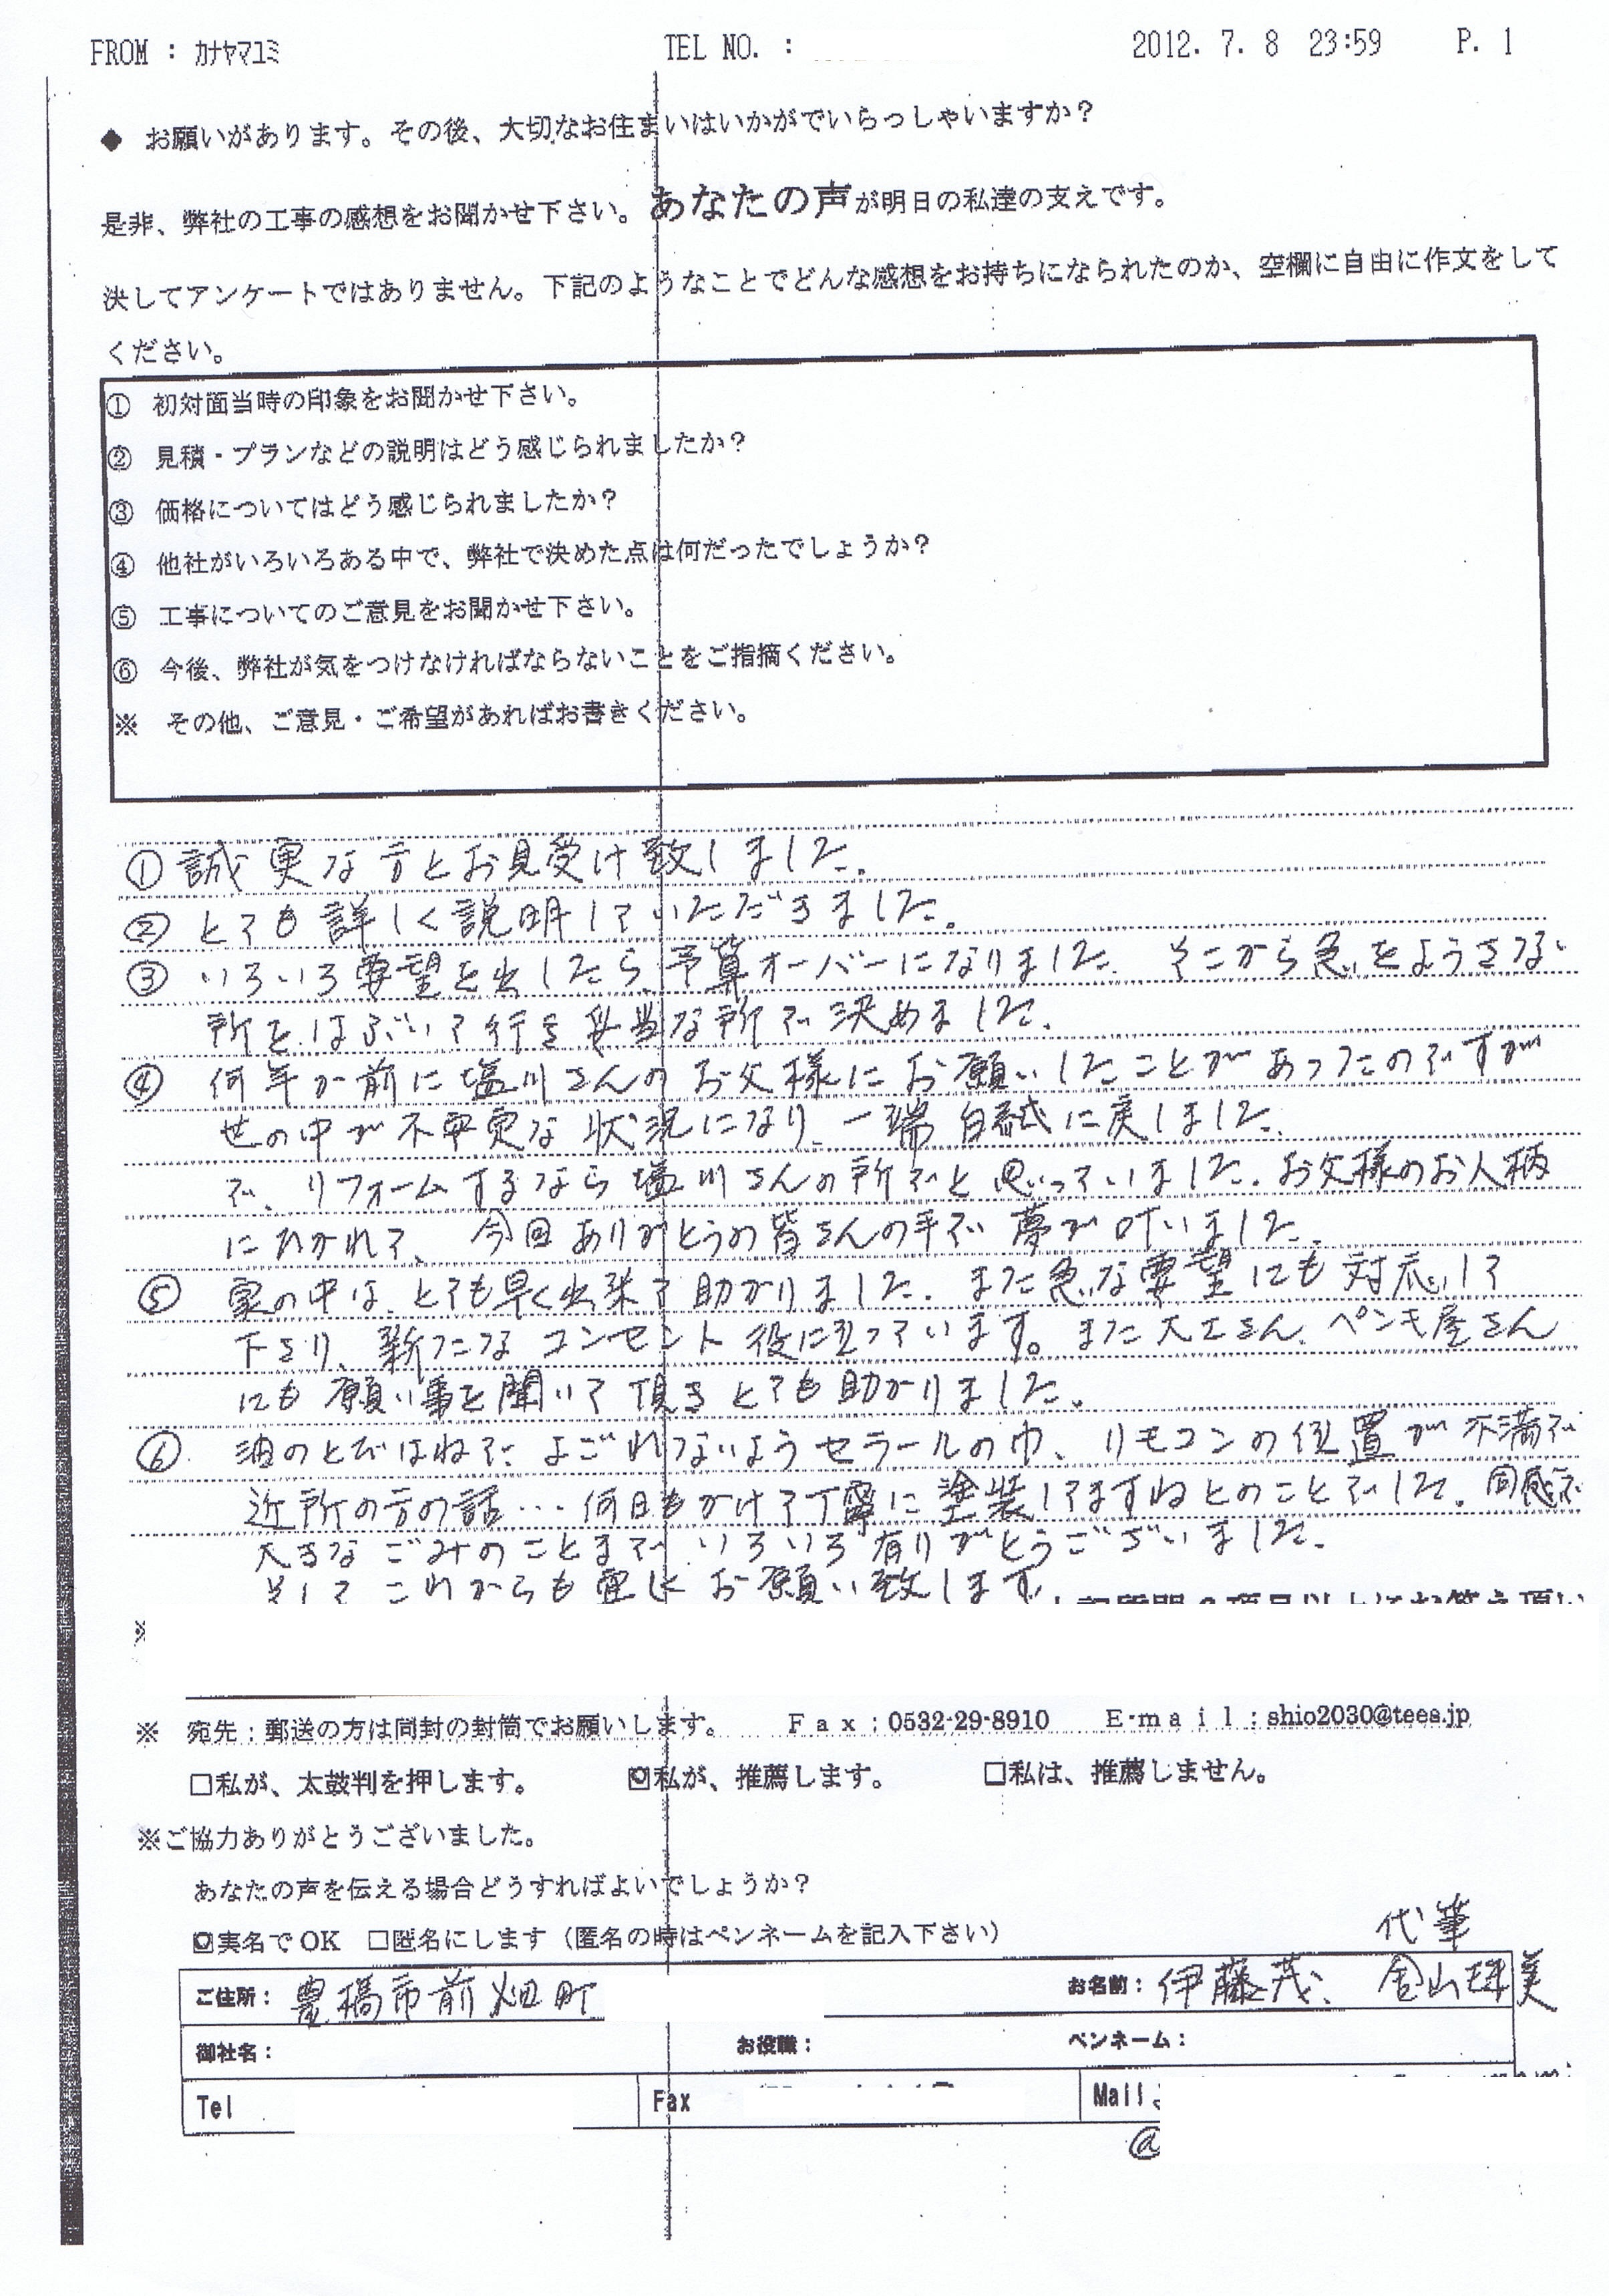 FROM : カナヤマユミ TEL NO. : 2012. 7. 8 23:59 P. 1
◆ お願いがあります。その後、大切なお住まいはいかがでいらっしゃいますか？
是非、弊社の工事の感想をお聞かせ下さい。あなたの声が明日の私達の支えです。
決してアンケートではありません。下記のようなことでどんな感想をお持ちになられたのか、空欄に自由に作文をして
ください。
① 初対面当時の印象をお聞かせ下さい。
② 見積・プランなどの説明はどう感じられましたか？
③ 価格についてはどう感じられましたか？
④ 他社がいろいろある中で、弊社で決めた点は何だったでしょうか？
⑤ 工事についてのご意見をお聞かせ下さい。
⑥ 今後、弊社が気をつけなければならないことをご指摘ください。
※ その他、ご意見・ご希望があればお書きください。
① 誠実な方とお見受け致しました。
② とても詳しく説明していただきました。
③ いろいろ要望を出したら、予算オーバーになりました。そこから急をようさない
所をはぶいて行き妥当な所で決めました。
④ 何年か前に塩川さんのお父様にお願いしたことがあったのですが
世の中が不景気な状況になり、一端白紙に戻しました。
で、リフォームするなら塩川さんの所でと思っていました。お父様のお人柄
にひかれて、今回ありがとうの皆さんの手で夢が叶いました。
⑤ 家の中は、とても早く出来て助かりました。また急な要望にも対応して
下さり、新たなコンセント役に立っています。また大工さん、ペンキ屋さん
にも願い事を聞いて頂きとても助かりました。
⑥ 油のとびはねで よごれないようセラールの巾、リモコンの位置が不満で
近所の方の話…何日もかけて丁寧に塗装してますねとのことでした。同感で
大きなごみのことまで いろいろ有りがとうございました。
そして これからも宜しくお願い致します
※
※ 宛先：郵送の方は同封の封筒でお願いします。 Ｆａｘ：0532-29-8910 Ｅ-ｍａｉｌ：shio2030@tees.jp
□私が、太鼓判を押します。 ☑私が、推薦します。 □私は、推薦しません。
※ご協力ありがとうございました。
あなたの声を伝える場合どうすればよいでしょうか？
代筆
☑実名で OK □匿名にします（匿名の時はペンネームを記入下さい）
ご住所： 豊橋市前畑町 お名前： 伊藤茂、 金山珠美
御社名： お役職： ペンネーム：
Tel Fax Mail
@